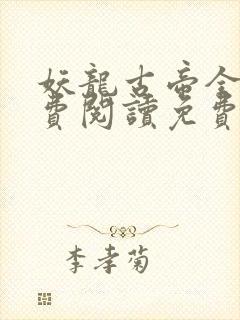 妖龍古帝全
費閱讀免費
李孝菊